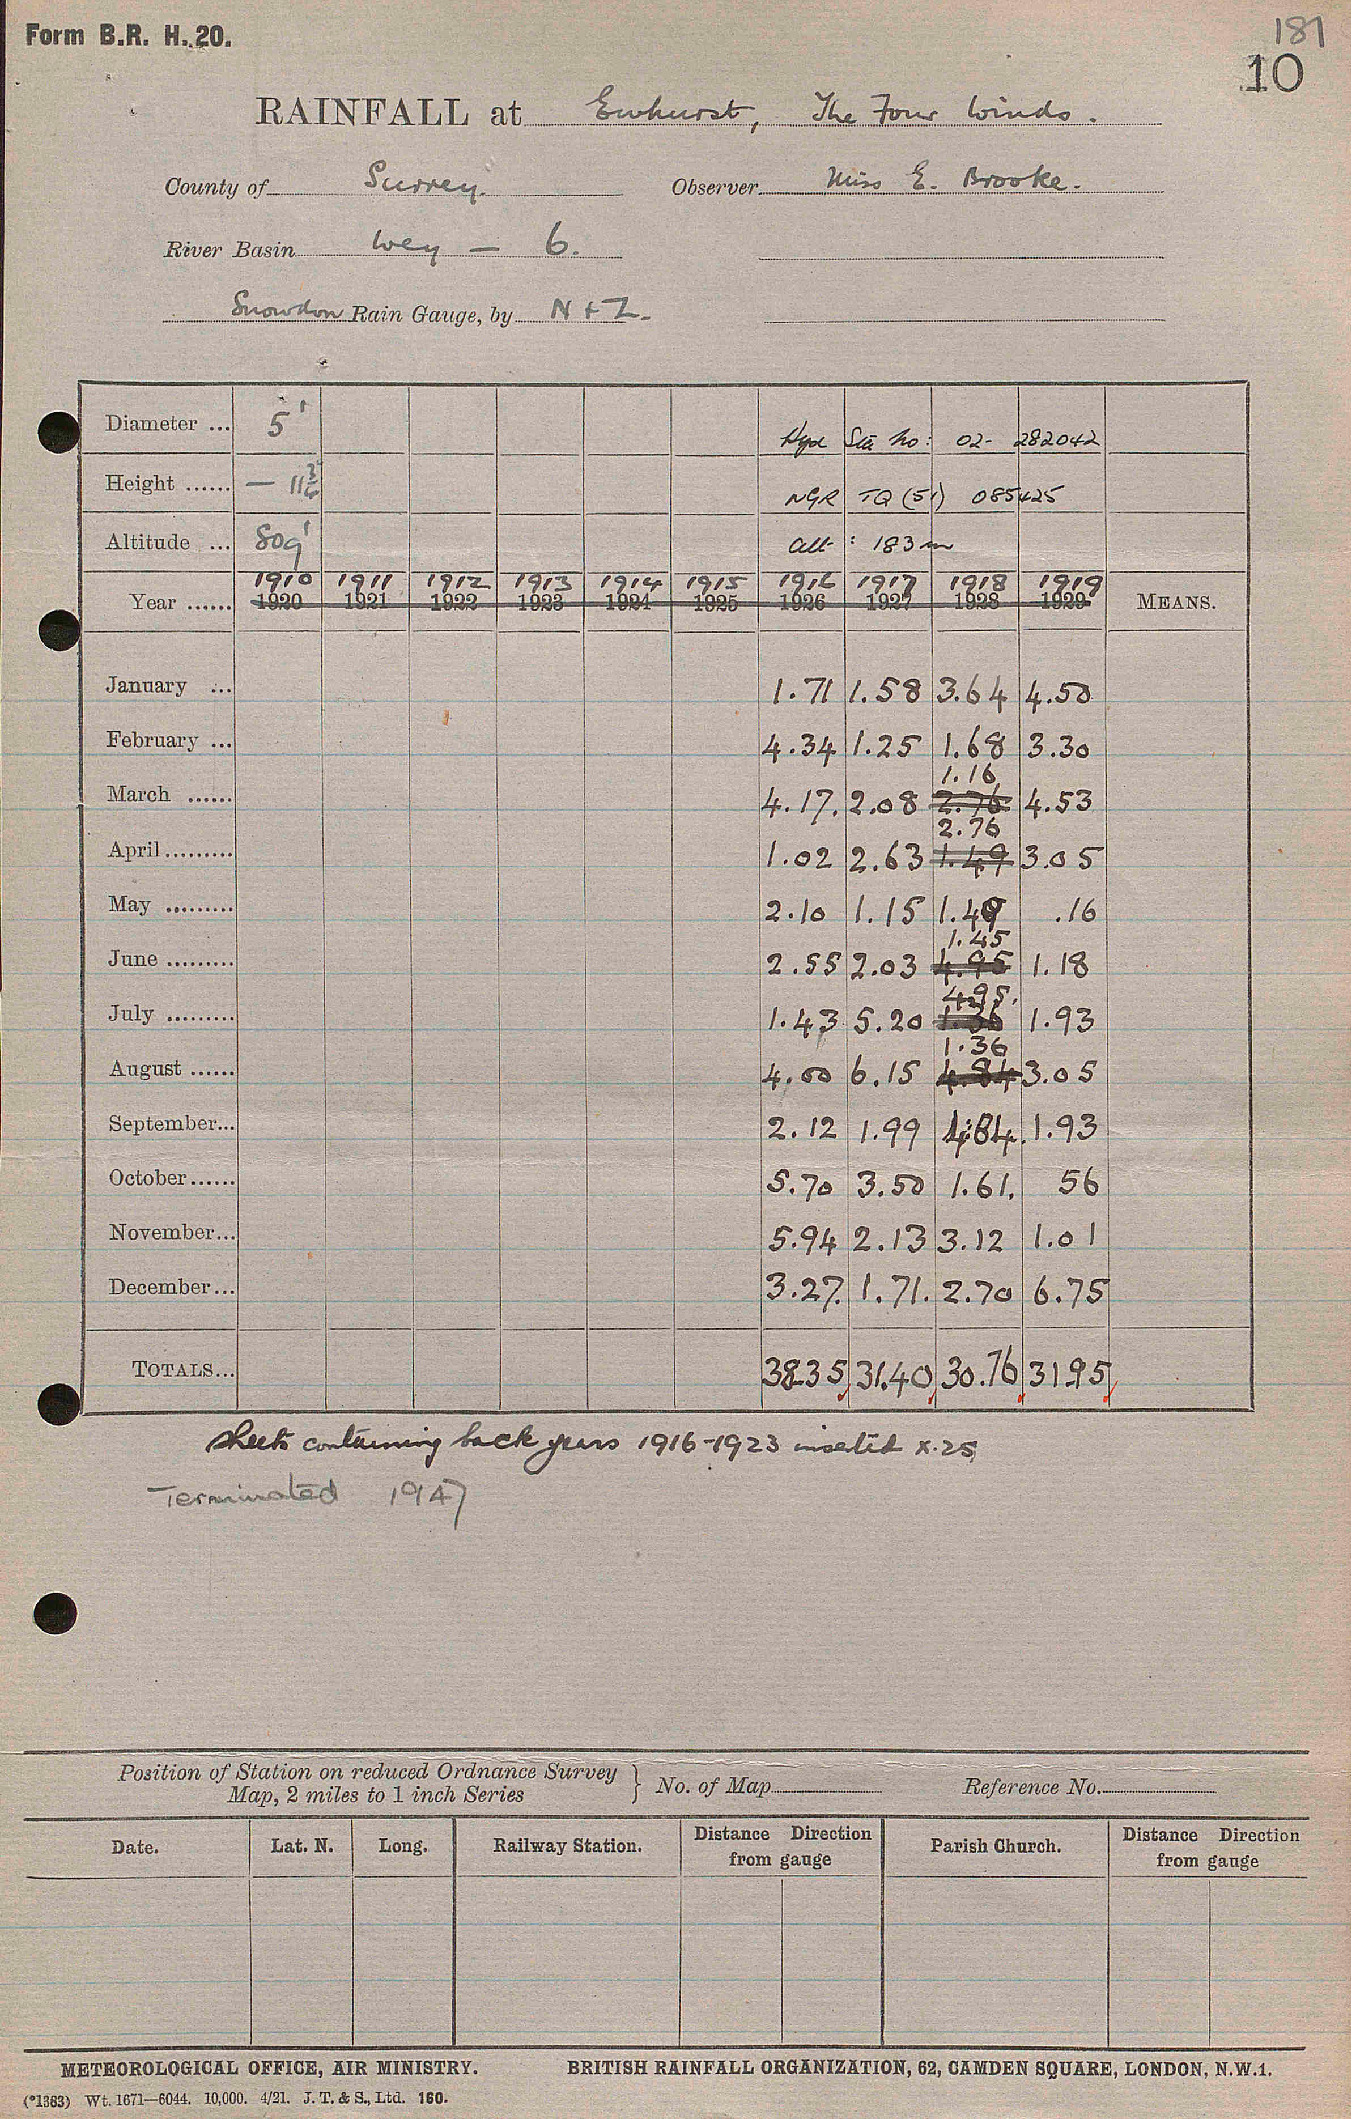 Form B.R. H. 20.
181
10
RAINFALL at Ewhurst, The Four Winds.
County of Surrey. Observer Miss E. Brooke.
River Basin Wey — 6.
Snowdon Rain Gauge, by N + Z.
Diameter ... 5" Hyd Sta No: 02- 282042
Height ...... — 11 NGR TQ (51) 085425
Altitude ... 809' alt : 183m
1910 1911 1912 1913 1914 1915 1916 1917 1918 1919
Year ...... 1920 1921 1922 1923 1924 1925 1926 1927 1928 1929 MEANS.
January ... 1.71 1.58 3.64 4.50
February ... 4.34 1.25 1.68 3.30
1.16
March ...... 4.17. 2.08 2.76 4.53
2.76
April ......... 1.02 2.63 1.49 3.05
May ......... 2.10 1.15 1.49 .16
1.45
June ......... 2.55 2.03 4.95 1.18
4.95.
July ......... 1.43 5.20 1.36 1.93
1.36
August ...... 4.00 6.15 4.84 3.05
September... 2.12 1.99 4.84. 1.93
October ...... 5.70 3.50 1.61. 56
November... 5.94 2.13 3.12 1.01
December... 3.27. 1.71. 2.70 6.75
TOTALS... 38.35 31.40 30.76 31.95
Sheets containing back years 1916-1923 inserted X.25
Terminated 1947
Position of Station on reduced Ordnance Survey
Map, 2 miles to 1 inch Series } No. of Map Reference No.
Date. Lat. N. Long. Railway Station. Distance Direction from gauge Parish Church. Distance Direction from gauge
METEOROLOGICAL OFFICE, AIR MINISTRY. BRITISH RAINFALL ORGANIZATION, 62, CAMDEN SQUARE, LONDON, N.W.1.
(*1363) Wt. 1671—6044. 10,000. 4/21. J. T. & S., Ltd. 160.